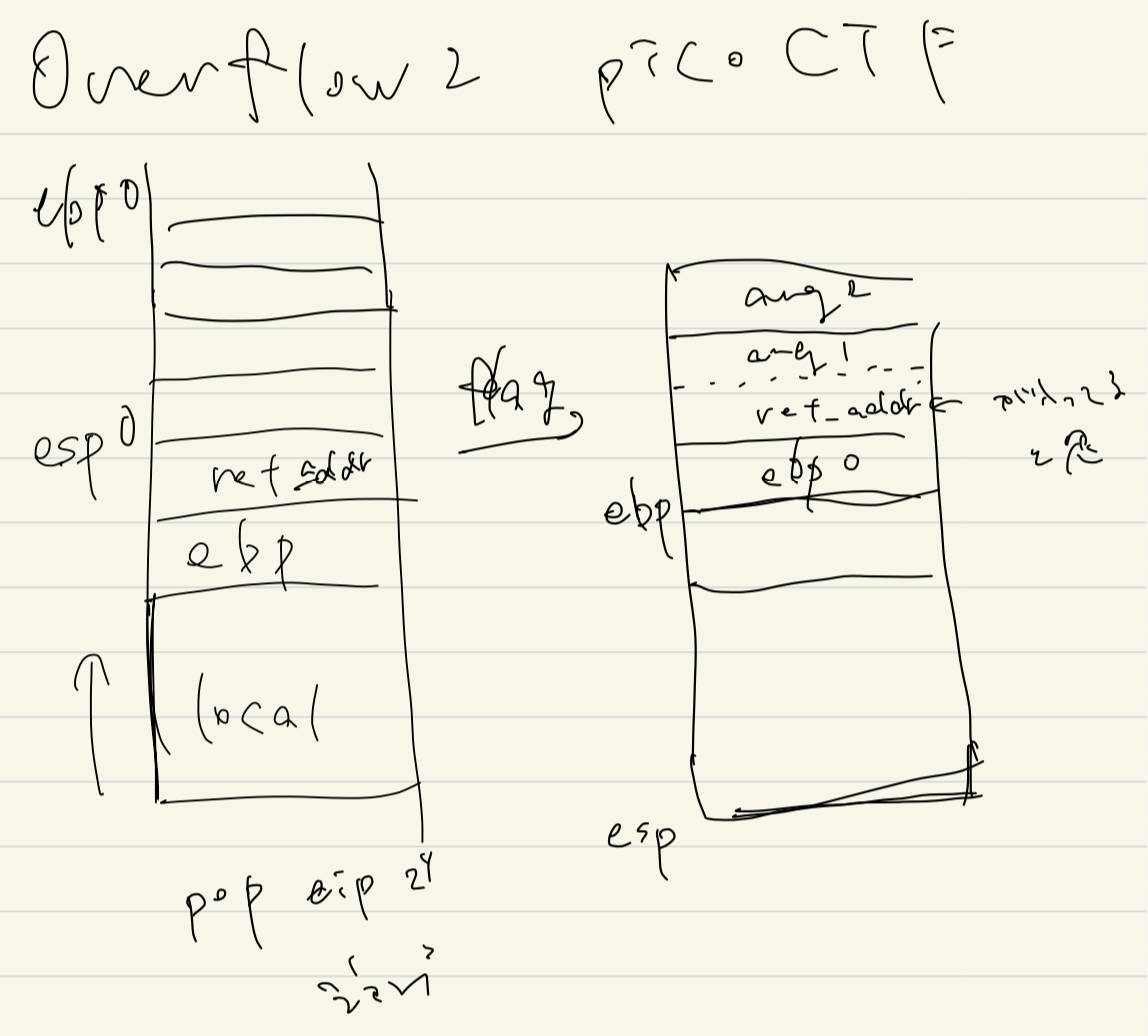 Overflow 2 picoCTF
ebp0
esp0
ret addr
ebp
local
pop eip
flag
arg 2
arg 1
ret_addr ←
ebp 0
ebp
esp